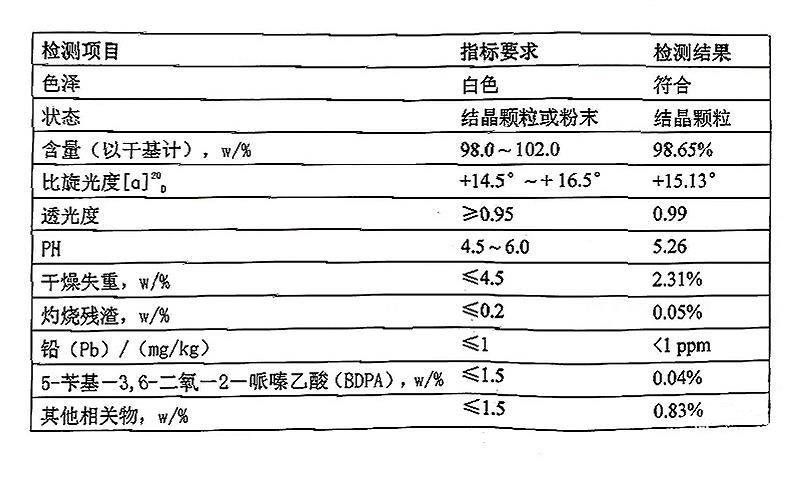 检测项目 指标要求 检测结果
色泽 白色 符合
状态 结晶颗粒或粉末 结晶颗粒
含量（以干基计），w/% 98.0～102.0 98.65%
比旋光度[a]²⁰D +14.5°～+16.5° +15.13°
透光度 ≥0.95 0.99
PH 4.5～6.0 5.26
干燥失重，w/% ≤4.5 2.31%
灼烧残渣，w/% ≤0.2 0.05%
铅（Pb）/（mg/kg） ≤1 <1 ppm
5-苄基-3,6-二氧-2-哌嗪乙酸（BDPA），w/% ≤1.5 0.04%
其他相关物，w/% ≤1.5 0.83%